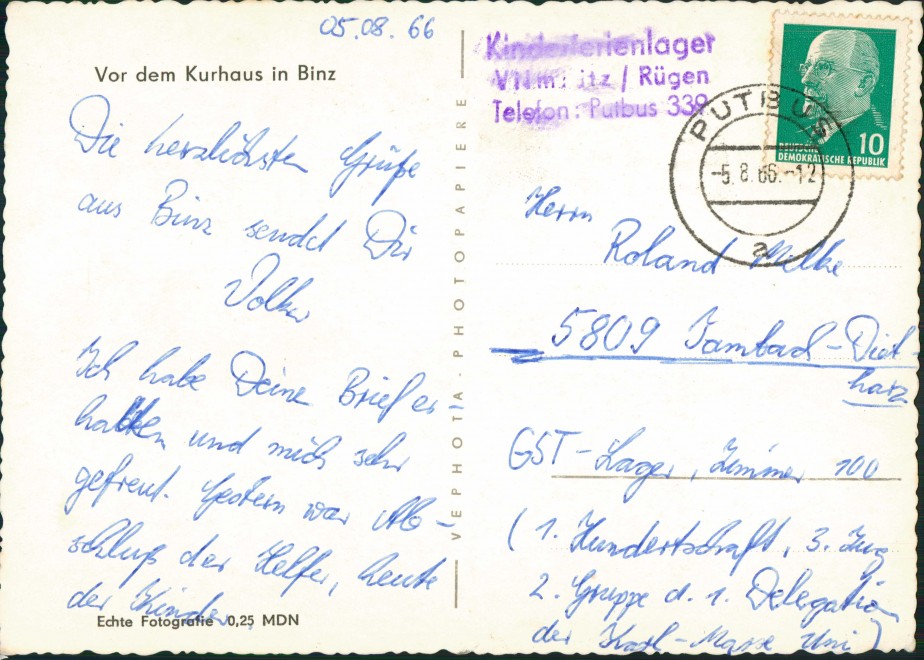 05.08.66
Vor dem Kurhaus in Binz
Die herzlichsten Grüße
aus Binz sendet Dir
Volker
Ich habe Deine Brief er-
halten und mich sehr
gefreut. Gestern war Ab-
schluß der Helfer, heute
der Kinder.
Echte Fotografie 0,25 MDN
VEPHOTA · PHOTOPAPIERE
Kinderferienlager
/ Rügen
Telefon: Putbus 339
DEUTSCHE
DEMOKRATISCHE REPUBLIK
10
PUTBUS
-5.8.66.-12
a
Herrn
Roland Melke
5809 Tambach-Diet
harz
GST-Lager, Zimmer 100
(1. Hundertschaft, 3. Zug
2. Gruppe d. 1. Delegation
der Karl-Marx Uni)